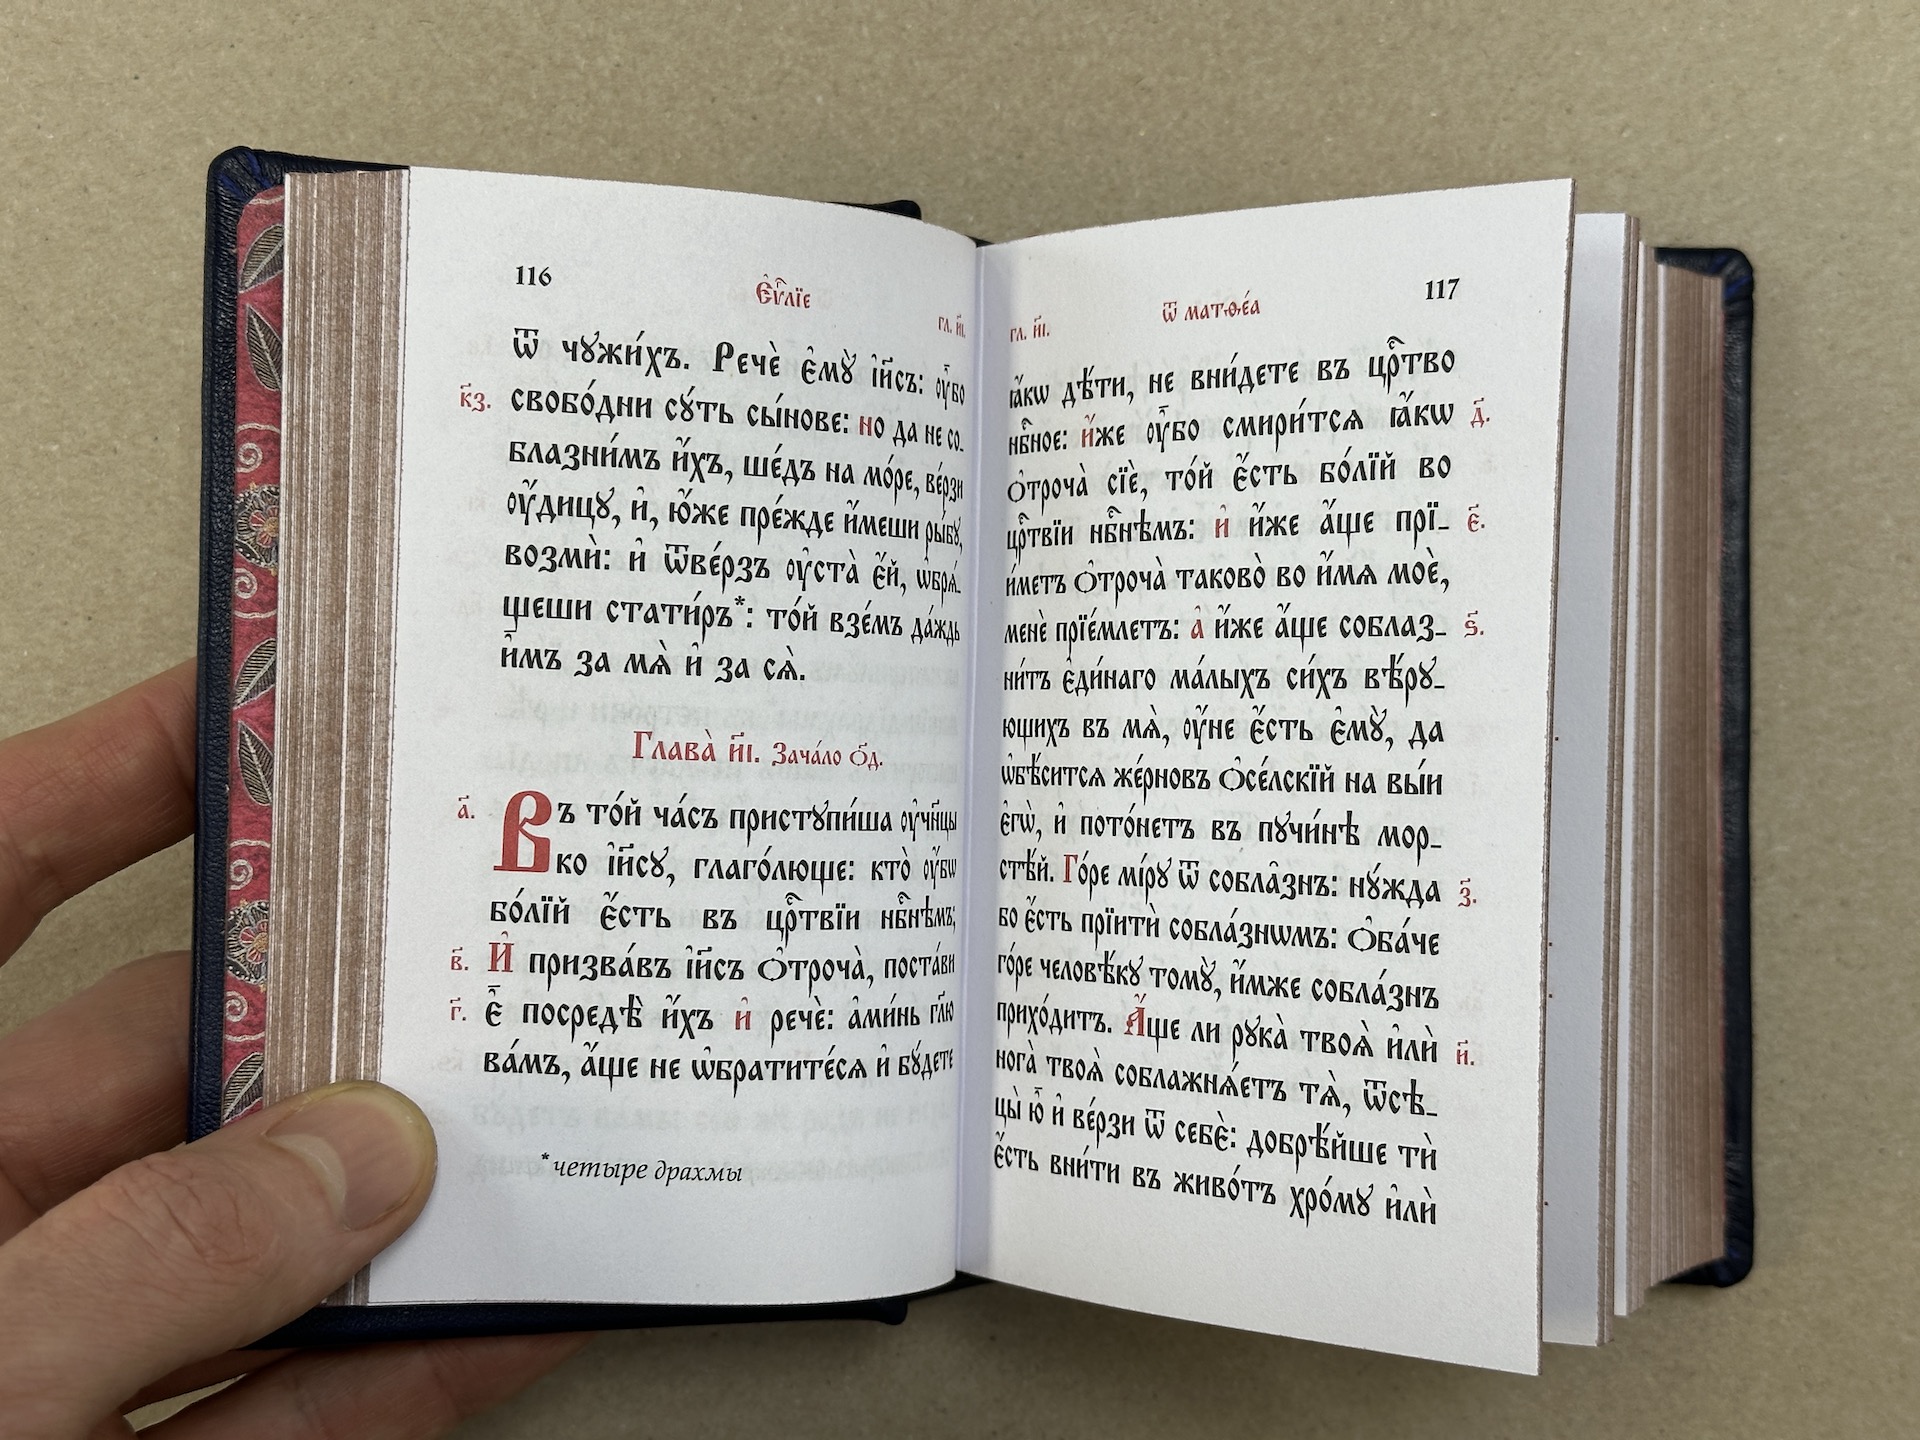 116
Є҆ѵⷢ҇лїе
гл. и҃і.
Ѿ чꙋжи́хъ. Речѐ є҆мꙋ̀ і҆и҃съ: ᲂу҆̀бо
к҃з. свобо́дни сꙋ́ть сы́нове: но да не со_
блазни́мъ и҆̀хъ, ше́дъ на мо́ре, ве́рзи
ᲂу҆́дицꙋ, и҆, ю҆́же пре́жде и҆́меши ры́бꙋ,
возмѝ: и҆ ѿве́рзъ ᲂу҆ста̀ є҆́й, ѡ҆брѧ́_
щеши стати́ръ*: то́й взе́мъ да́ждь
и҆̀мъ за мѧ̀ и҆ за сѧ̀.
Глава̀ и҃і. Зача́ло ѻ҃д.
а҃. Въ то́й ча́съ пристꙋпи́ша ᲂу҆чн҃цы
ко і҆и҃сꙋ, глаго́люще: кто̀ ᲂу҆̀бѡ
бо́лїй є҆́сть въ црⷭ҇твїи нбⷭ҇нѣмъ;
в҃. И҆ призва́въ і҆и҃съ ѻ҆троча̀, поста́ви
г҃. є҆̀ посредѣ̀ и҆́хъ и҆ речѐ: а҆ми́нь гл҃ю
ва́мъ, а҆́ще не ѡ҆братите́сѧ и҆ бꙋ́дете
*четыре драхмы
117
Ѿ матѳе́а
гл. и҃і.
ꙗ҆́кѡ дѣ́ти, не вни́дете въ црⷭ҇тво
нбⷭ҇ное: и҆́же ᲂу҆̀бо смири́тсѧ ꙗ҆́кѡ д҃.
ѻ҆троча̀ сїѐ, то́й є҆́сть бо́лїй во
црⷭ҇твїи нбⷭ҇нѣмъ: и҆ и҆́же а҆́ще прї_ є҃.
и́метъ ѻ҆троча̀ таково̀ во и҆́мѧ моѐ,
менѐ прїе́млетъ: а҆ и҆́же а҆́ще соблаз_ ѕ҃.
ни́тъ є҆ди́наго ма́лыхъ си́хъ вѣ́рꙋ_
ющихъ въ мѧ̀, ᲂу҆́не є҆́сть є҆мꙋ̀, да
ѡ҆бѣ́ситсѧ же́рновъ ѻ҆се́лскїй на вы́и
є҆гѡ̀, и҆ пото́нетъ въ пꙋчи́нѣ мор_
стѣ́й. Го́ре мі́рꙋ ѿ собла̑знъ: нꙋ́жда з҃.
бо є҆́сть прїитѝ собла́знѡмъ: ѻ҆ба́че
го́ре человѣ́кꙋ томꙋ̀, и҆́мже собла́знъ
прихо́дитъ. А҆́ще ли рꙋка̀ твоѧ̀ и҆лѝ и҃.
нога̀ твоѧ̀ соблажнѧ́етъ тѧ̀, ѿсѣ_
цы̀ ю҆̀ и҆ ве́рзи ѿ себє̀: добрѣ́йше тѝ
є҆́сть вни́ти въ живо́тъ хро́мꙋ и҆лѝ